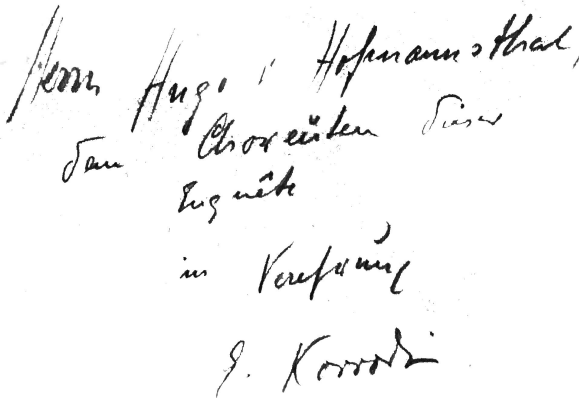 Herrn Hugo v Hofmannsthal,
dem Choreüten dieser
Enquête
in Verehrung
E. Korrodi